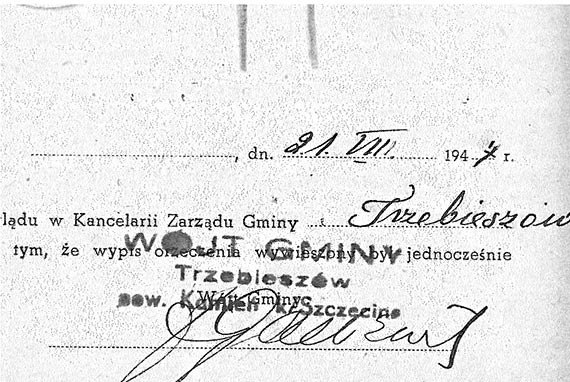 , dn. 21. VIII. 1947 r.
lądu w Kancelarii Zarządu Gminy Trzebieszów
tym, że wypis orzeczenia wywieszony był jednocześnie
WÓJT GMINY
Trzebieszów
Wójt Gminy
pow. Kamień k/Szczecina